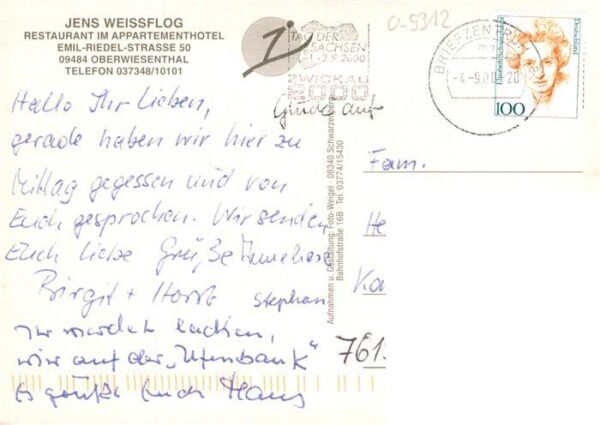 JENS WEISSFLOG
RESTAURANT IM APPARTEMENTHOTEL
EMIL-RIEDEL-STRASSE 50
09484 OBERWIESENTHAL
TELEFON 037348/10101
TAG DER
SACHSEN
-3.9.2000
ZWICKAU
2000
BRIEFZENTRUM
-4.-9.00-20
0-5312
Deutschland
100
Glück auf
Hallo Ihr Lieben,
gerade haben wir hier zu
Mittag gegessen und von
Euch gesprochen. Wir senden
Euch liebe Grüße
Birgit + Horst Stephan
Ihr werdet lachen,
wir auf der „Ofenbank“
Es grüßt Euch Hans
Aufnahmen u. Gestaltung: Foto-Weigel · 08340 Schwarzenberg
Bahnhofstraße 16B · Tel. 03774/15430
Fam.
He
Ka
761